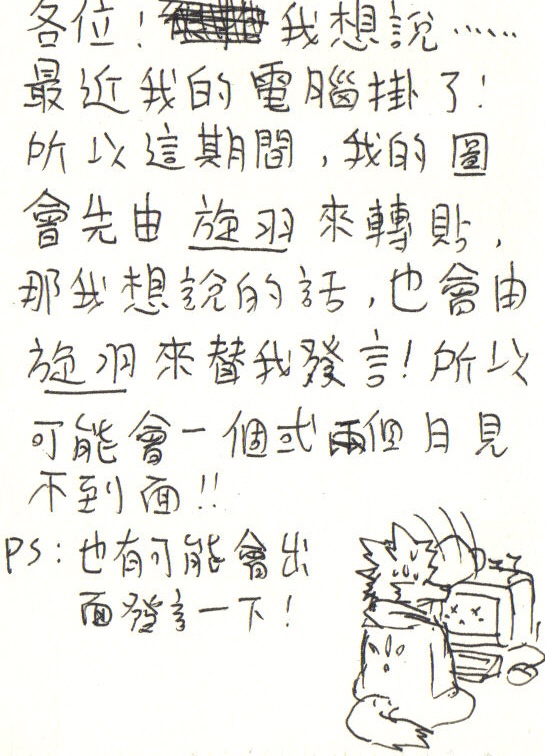 各位！我想說……
最近我的電腦掛了！
所以這期間，我的圖
會先由旋羽來轉貼，
那我想說的話，也會由
旋羽來替我發言！所以
可能會一個或兩個月見
不到面！！
PS：也有可能會出
面發言一下！